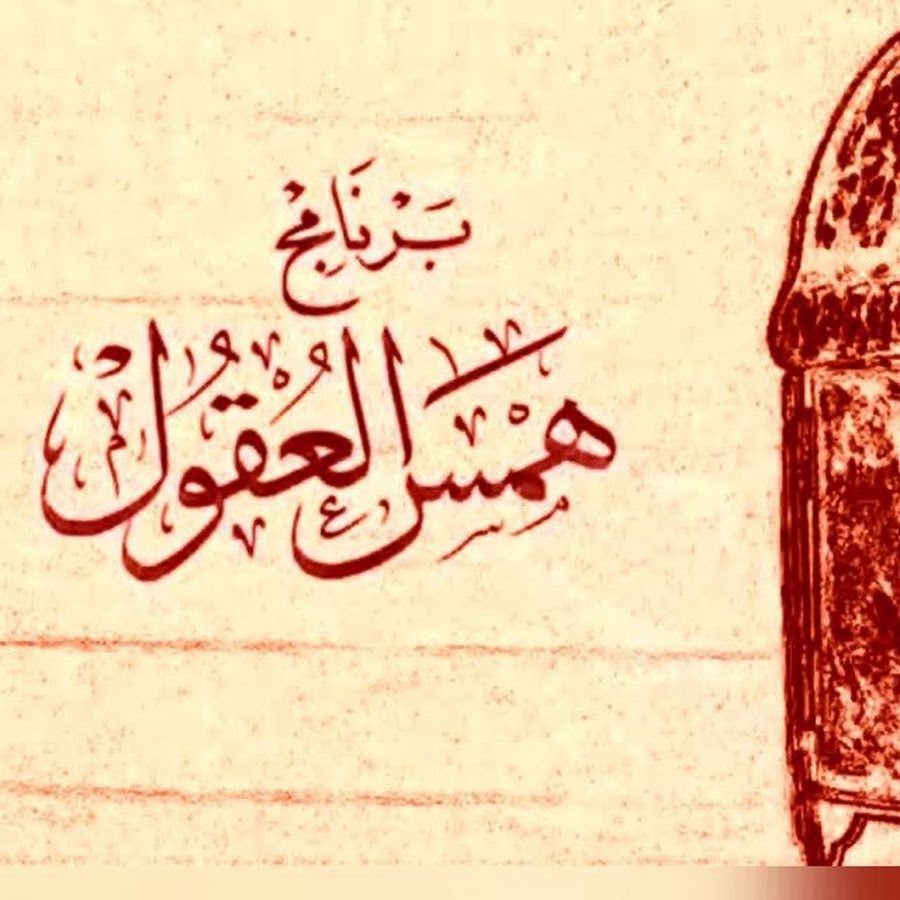 بَرْنَامَج
هَمْسُ العُقُولْ